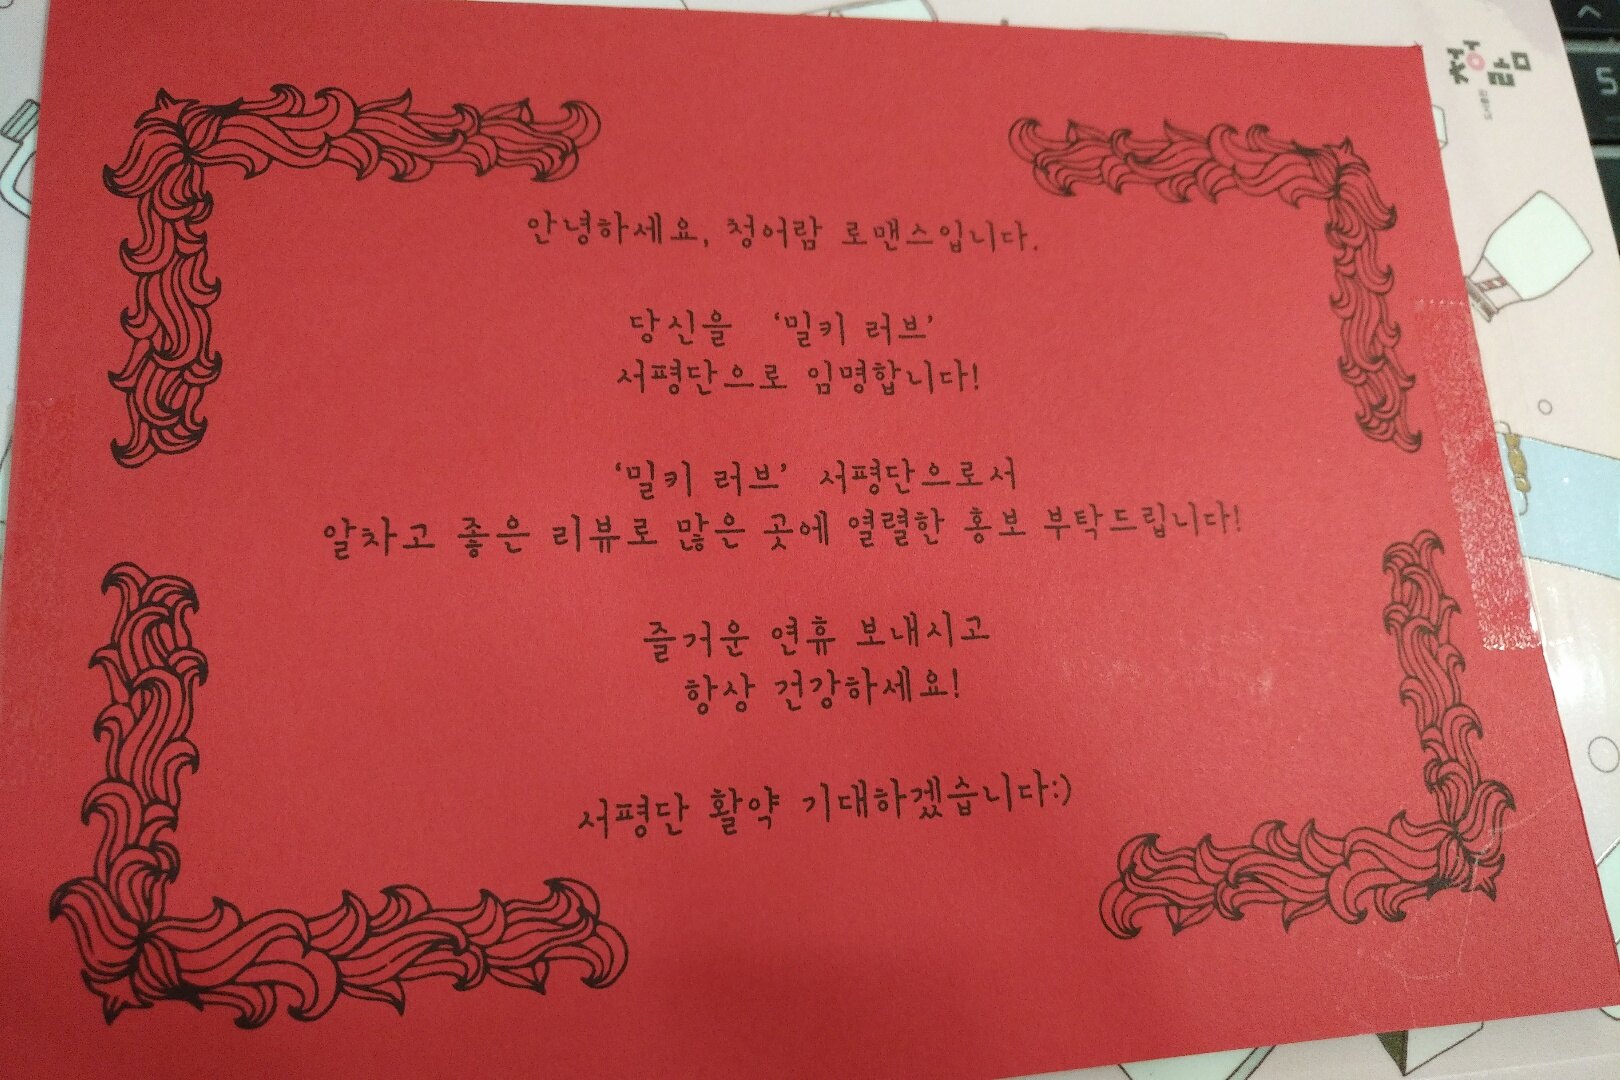 안녕하세요, 청어람 로맨스입니다.
당신을 '밀키 러브'
서평단으로 임명합니다!
'밀키 러브' 서평단으로서
알차고 좋은 리뷰로 많은 곳에 열렬한 홍보 부탁드립니다!
즐거운 연휴 보내시고
항상 건강하세요!
서평단 활약 기대하겠습니다:)
청어람
5